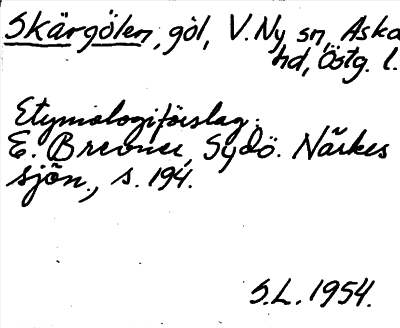 Skärgölen, göl, V. Ny sn, Aska
hd, Östg. l.
Etymologiförslag:
E. Brevner, Sydö. Närkes
sjön., s. 194.
S.L. 1954.